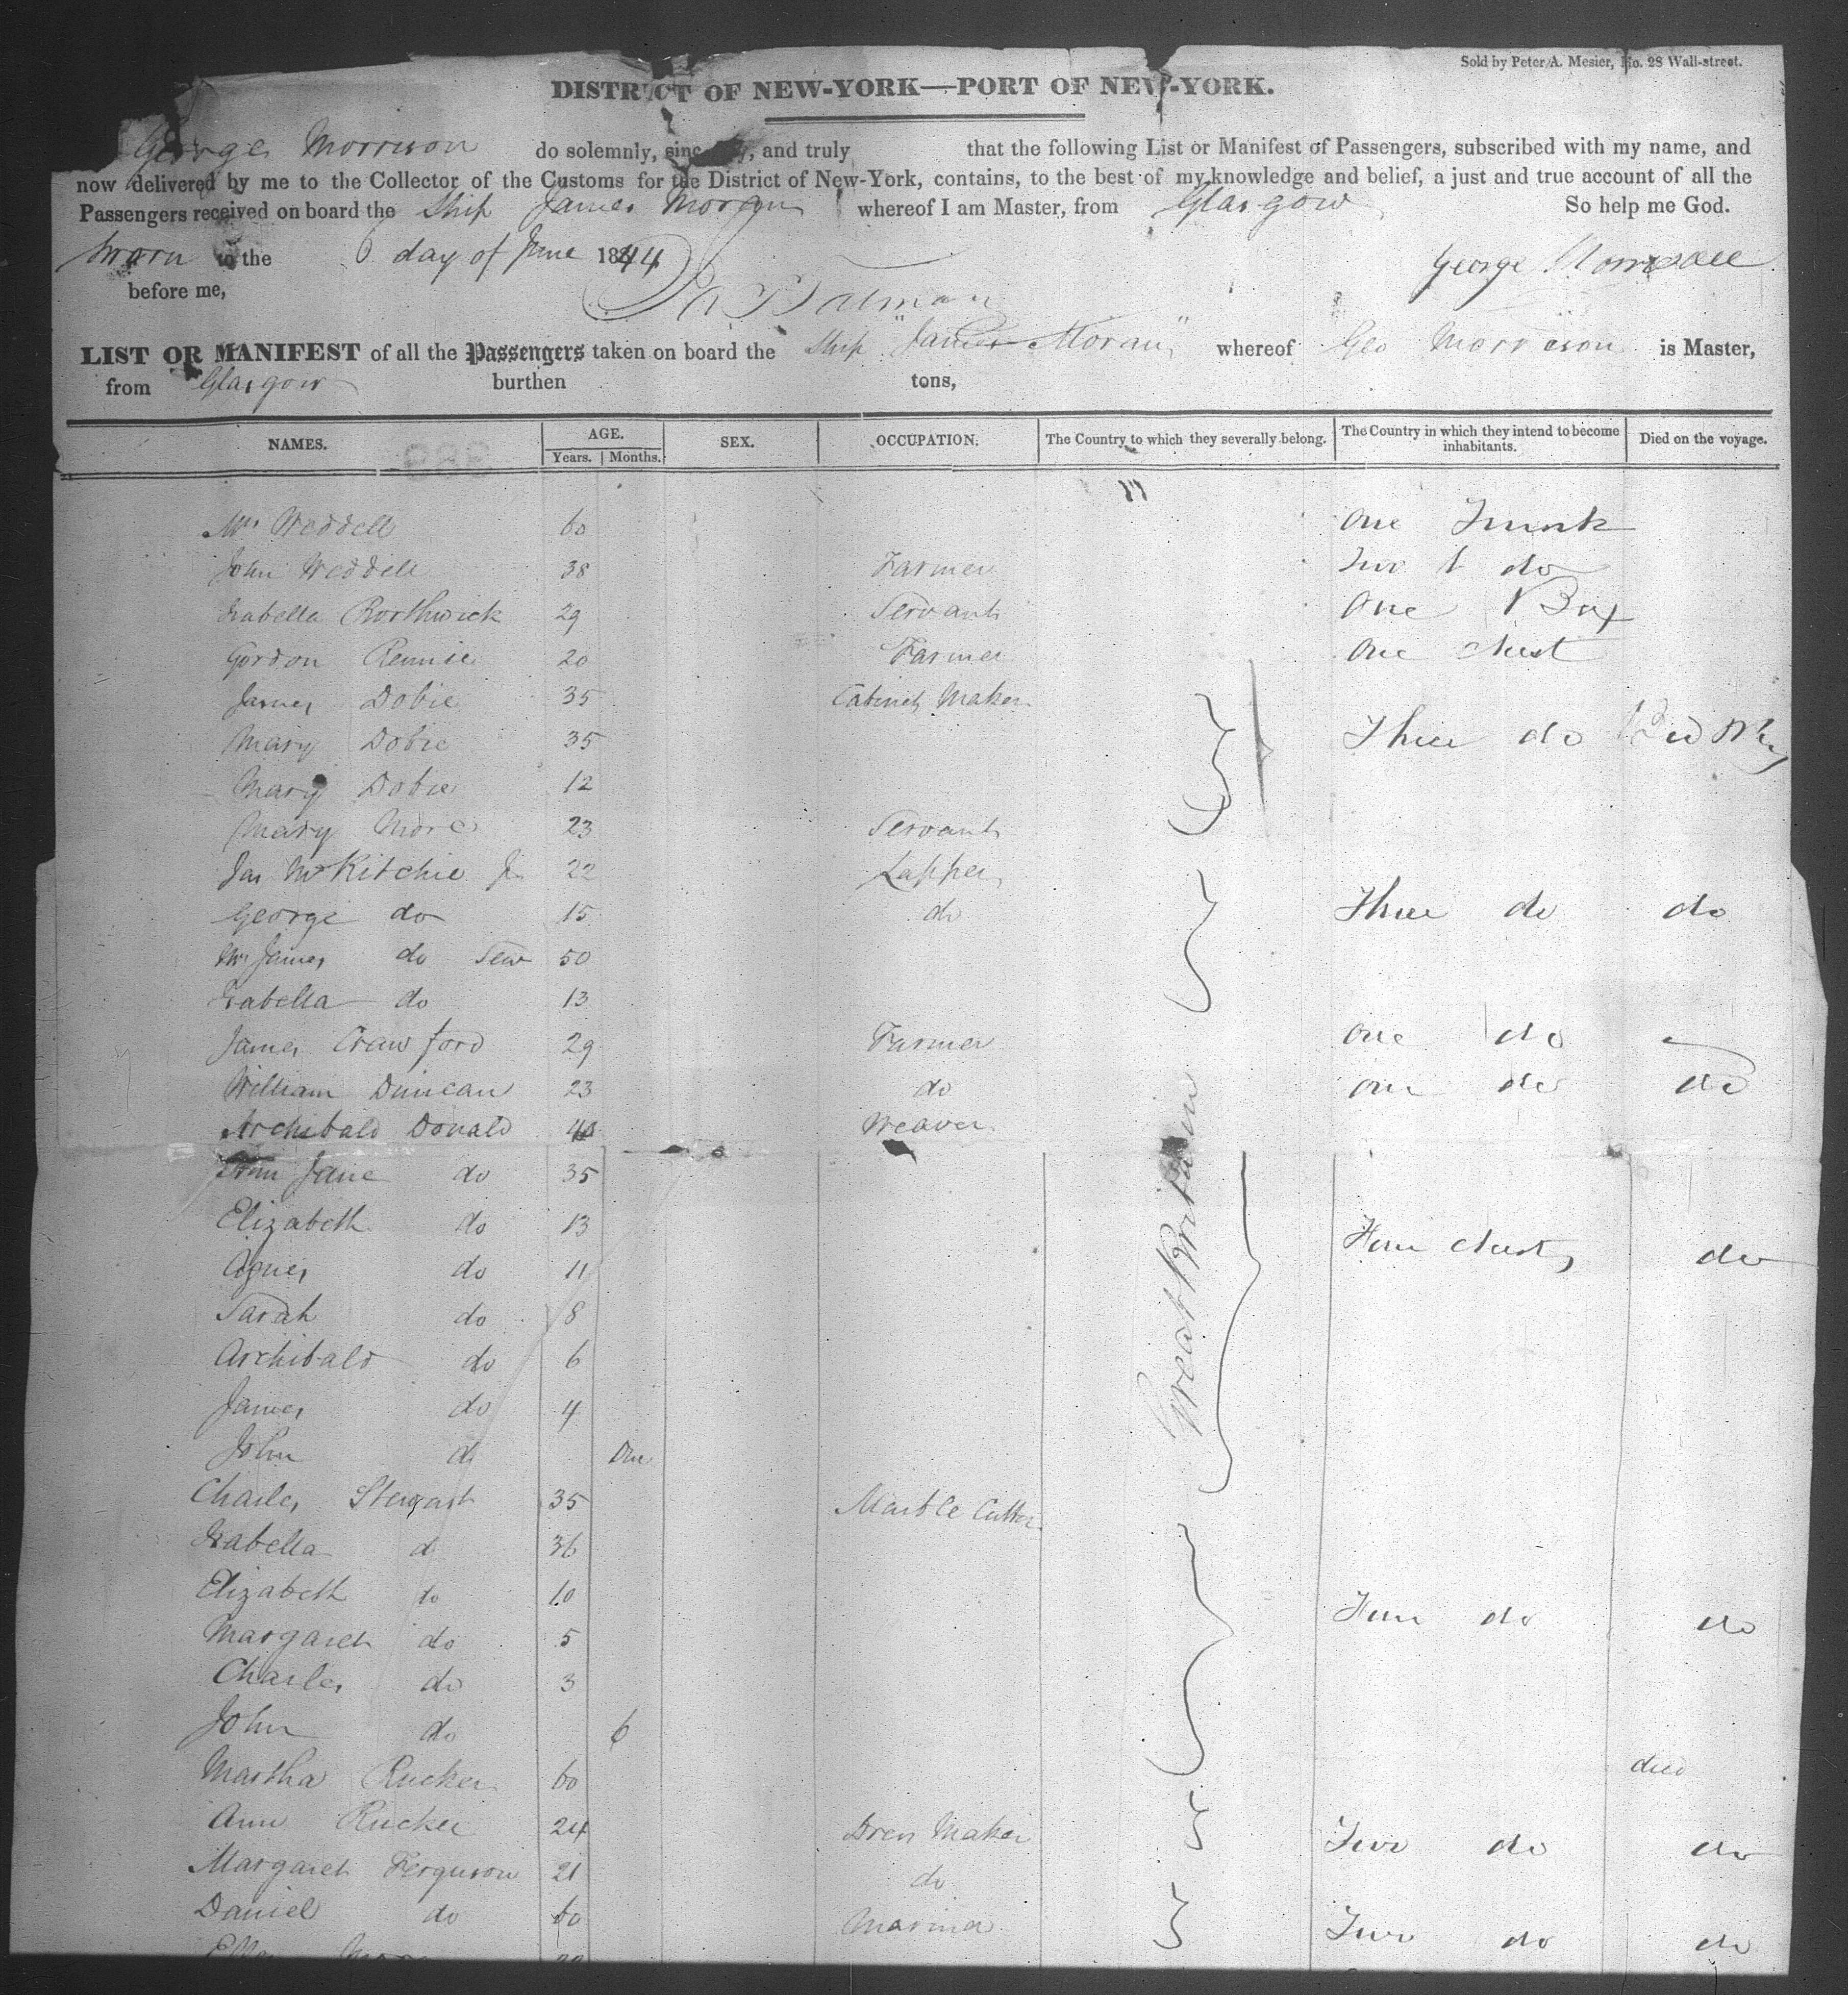 Sold by Peter A. Mesier, No. 28 Wall-street.
DISTRICT OF NEW-YORK—PORT OF NEW-YORK.
George Morrison do solemnly, sincerely, and truly that the following List or Manifest of Passengers, subscribed with my name, and
now delivered by me to the Collector of the Customs for the District of New-York, contains, to the best of my knowledge and belief, a just and true account of all the
Passengers received on board the Ship James Moran whereof I am Master, from Glasgow So help me God.
Sworn to the 6 day of June 1844
George Morrison
before me,
LIST OR MANIFEST of all the Passengers taken on board the Ship "James Moran" whereof Geo Morrison is Master,
from Glasgow burthen tons,
NAMES. AGE. SEX. OCCUPATION. The Country to which they severally belong. The Country in which they intend to become inhabitants. Died on the voyage.
Years. Months.
Mrs Weddell 60 One Trunk
John Weddell 38 Farmer Two do
Isabella Borthwick 29 Servant One Box
Gordon Rennie 20 Farmer One Chest
James Dobie 35 Cabinet Maker
Mary Dobie 35 Three do
Mary Dobie 12
Mary More 23 Servant
Jas McKitchie Jr 22 Lapper
George do 15 do Three do do
Mr James do Senr 50
Isabella do 13
James Crawford 29 Farmer One do
William Duncan 23 do One do do
Archibald Donald 40 Weaver
Ann Jane do 35
Elizabeth do 13 Four Chests do
Agnes do 11
Sarah do 8
Archibald do 6
James do 4
John do One
Great Britain
Charles Stewart 35 Marble Cutter
Isabella do 36
Elizabeth do 10 Four do do
Margaret do 5
Charles do 3
John do 6
Martha Rucker 60 died
Ann Rucker 24 Dress Maker Two do do
Margaret Ferguson 21 do
Daniel do 60 Mariner Two do do